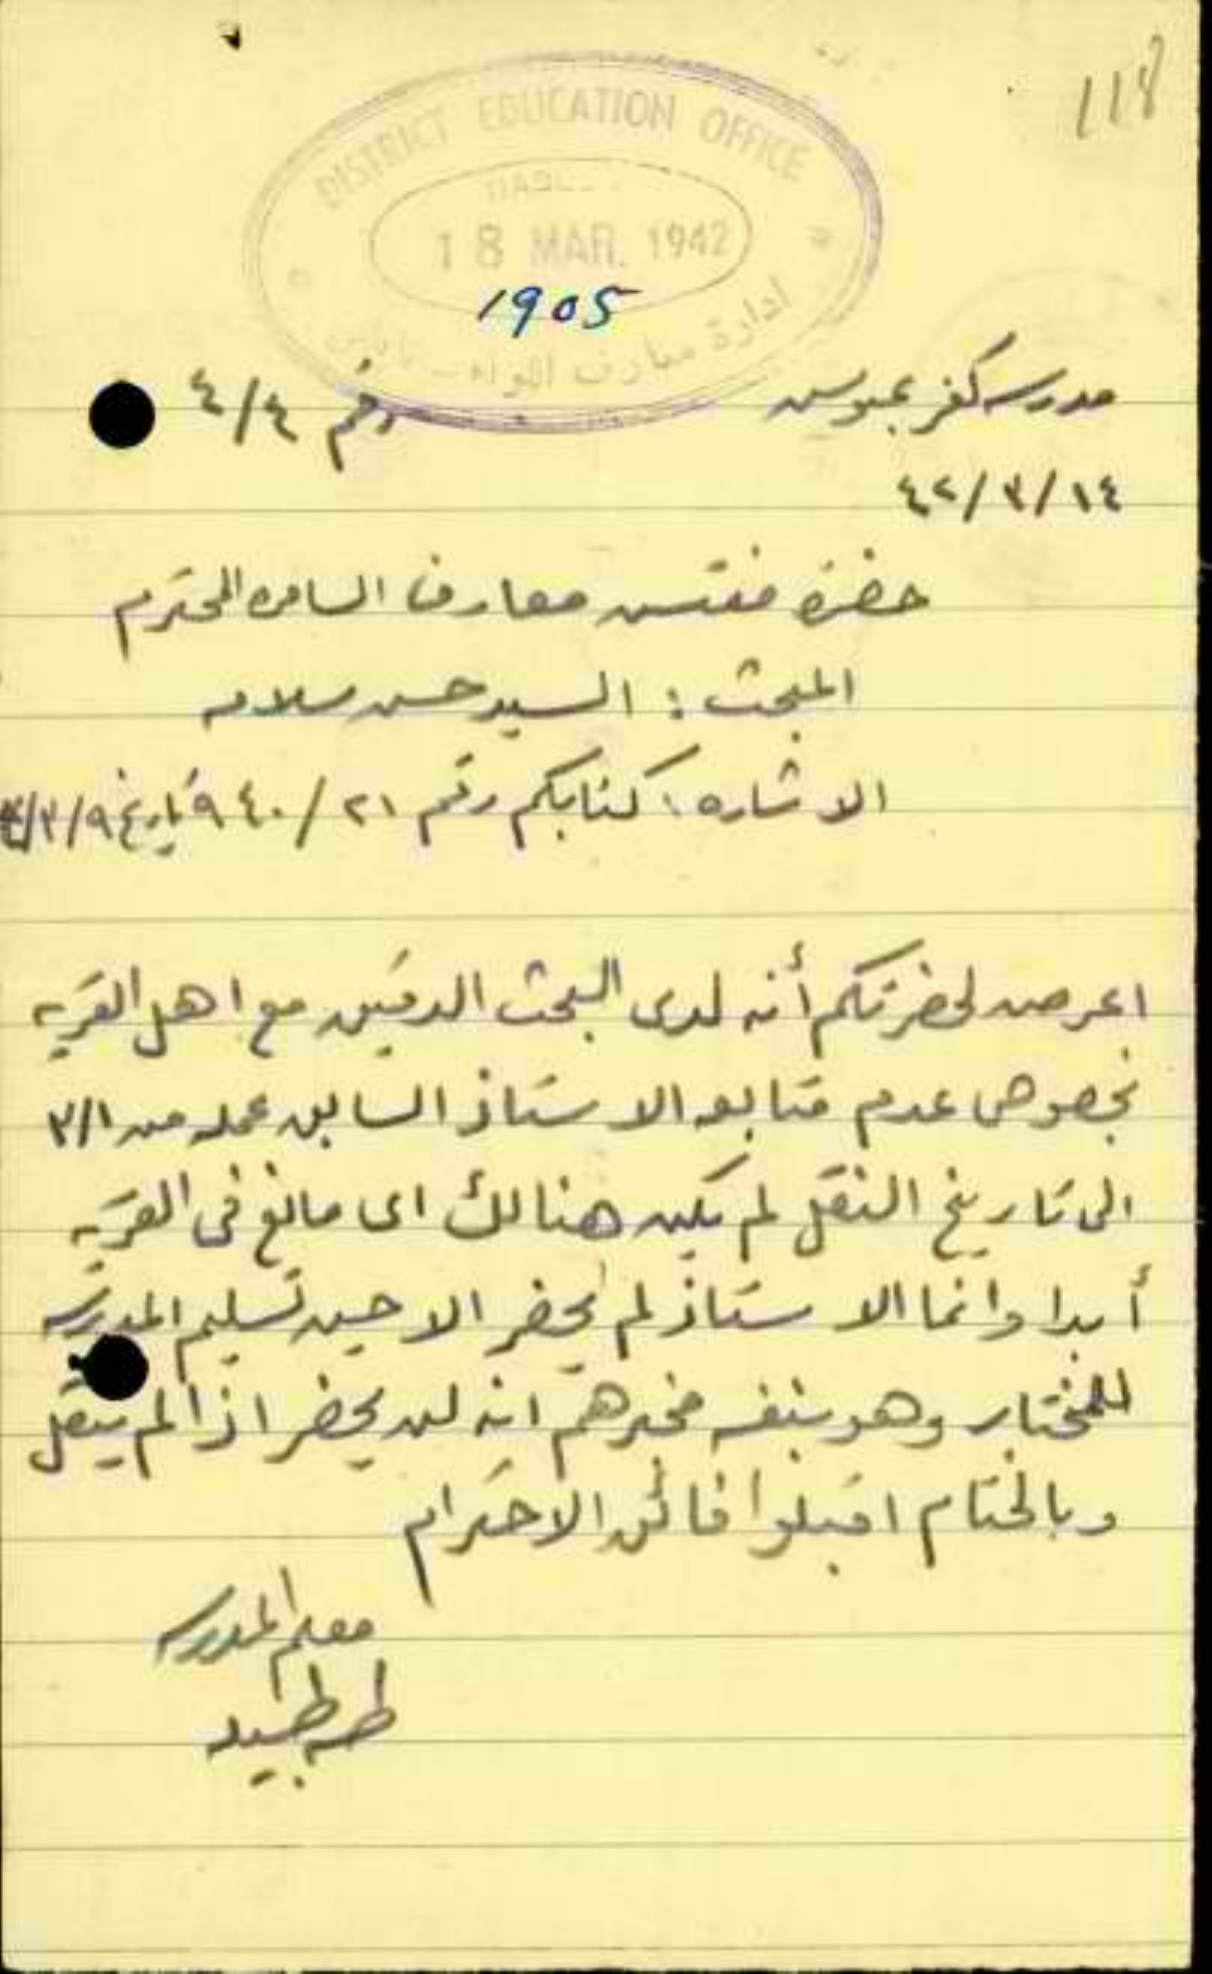 118
DISTRICT EDUCATION OFFICE
18 MAR. 1942
1905
ادارة معارف اللواء - نابلس
مدرسة كفر عبوس رقم ٤/٤
٤٢/٣/١٤
حضرة مفتش معارف السامره المحترم
المبحث : السيد حسن سلامه
الاشاره : كتابكم رقم ٩٤٠/٢١ تاريخ ٣/٩
اعرض لحضرتكم أنه لدى البحث الدقيق مع اهل القريه
بخصوص عدم متابعة الاستاذ السابق عمله من ٣/١
الى تاريخ النقل لم يكن هنالك اى مانع فى القريه
أبدا وانما الاستاذ لم يحضر الا حين تسليم المدرسه
للمختار وهو بنفسه مخبرهم انه لن يحضر اذا لم ينقل
وبالختام اقبلوا فائق الاحترام
معلم المدرسه
طه